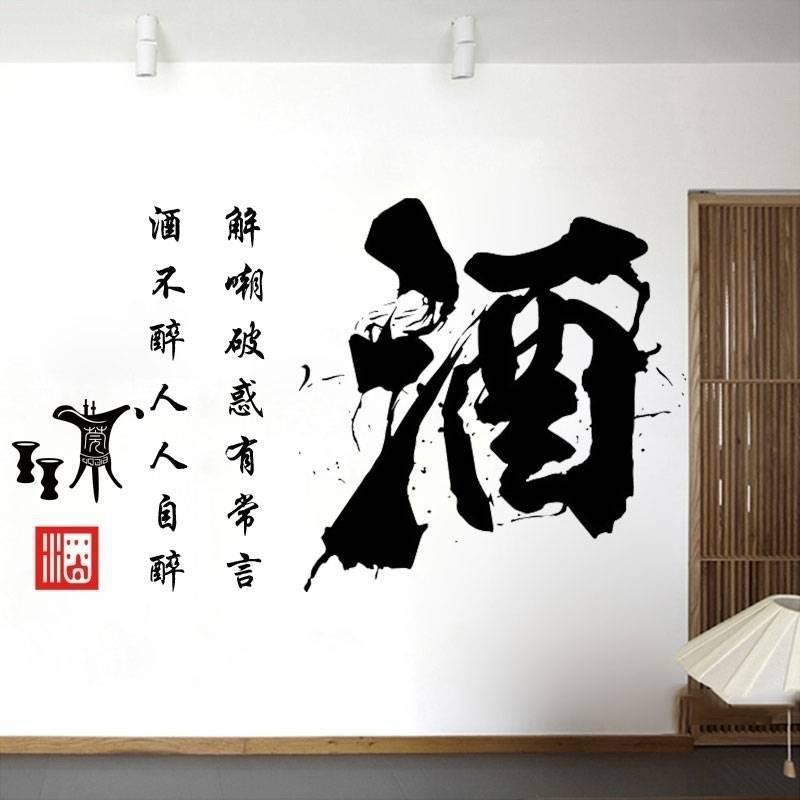 酒
解嘲破惑有常言
酒不醉人人自醉
酒